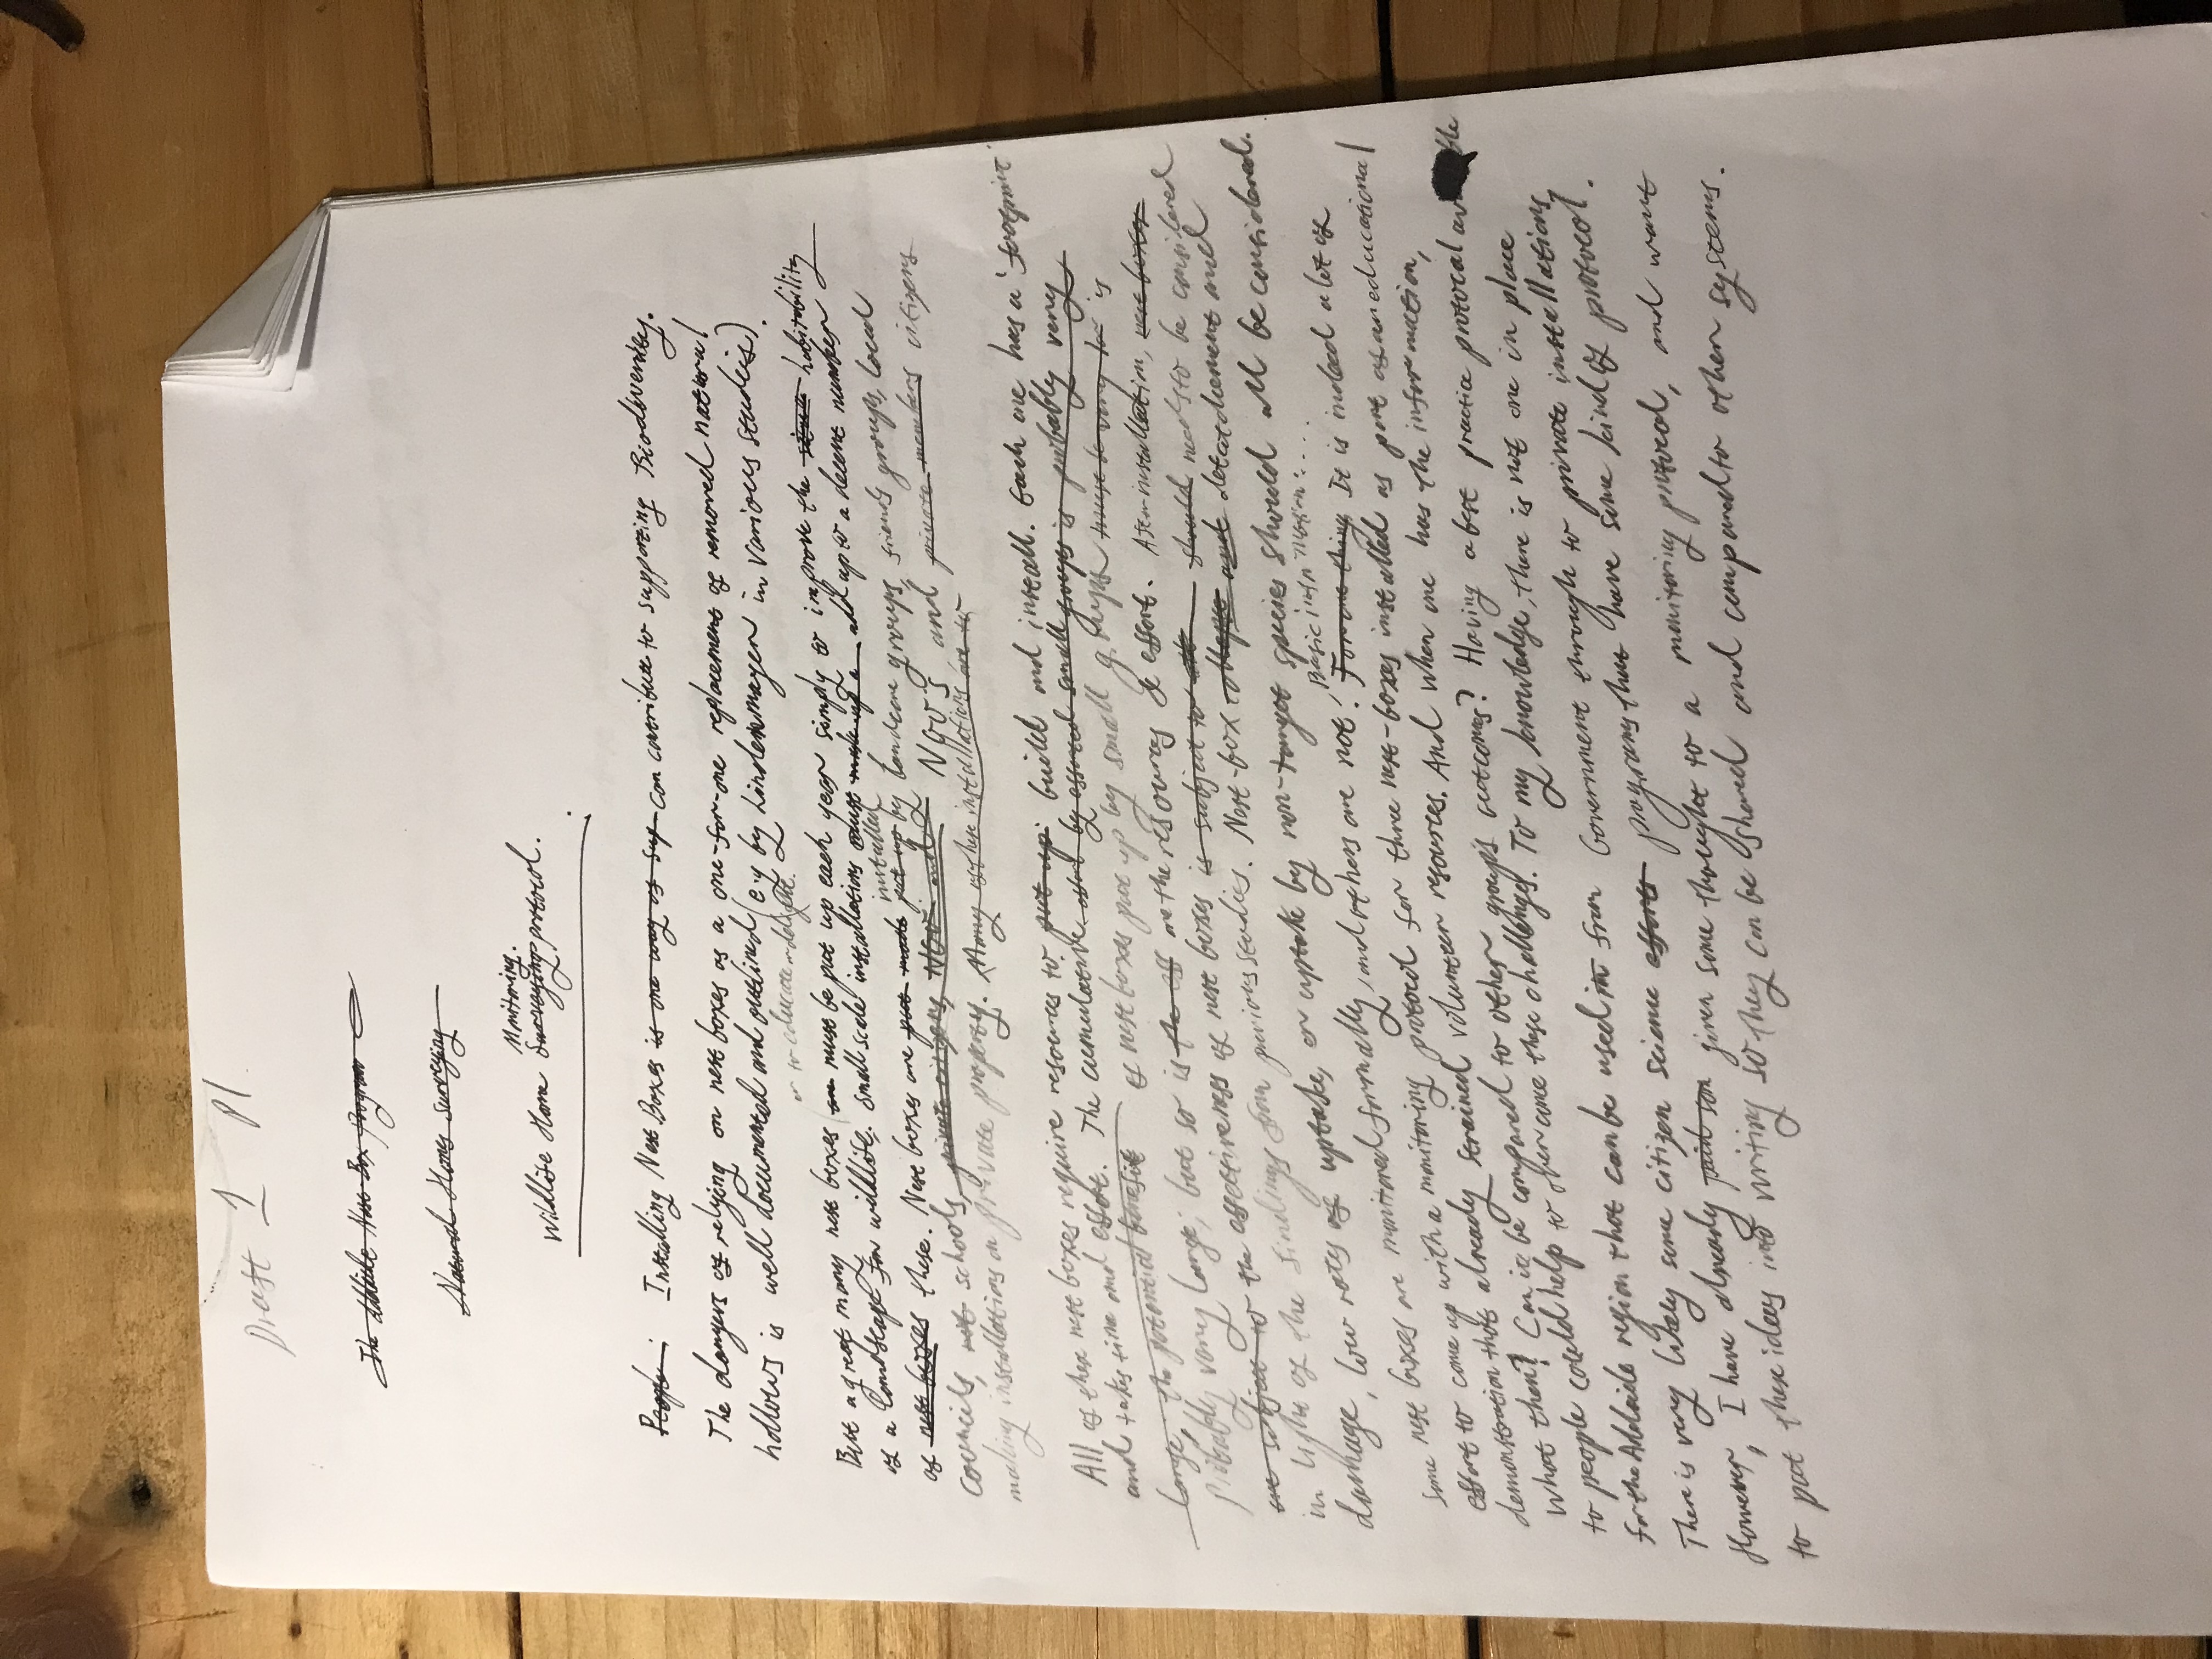 Draft 1 P1
The Adelaide Nest Box Program
Natural Homes Surveying
Monitoring.
Wildlife Home Surveying protocol.
People: Installing Nest Boxes is one way of Sup can contribute to supporting Biodiversity.
The dangers of relying on nest boxes as a one-for-one replacement of removed natural
hollows is well documented and outlined (e.g by Lindenmayer in various studeis).
or to educate or delight.
But a great many nest boxes are must be put up each year simply to improve the habitability
of a landscape for wildlife. Small scale installations must make up a add up to a decent number
installed
of nest boxes these. Nest boxes are put made put up by landcare groups, friends groups, local
councils, schools, private citizens, NGO's and NGO's, and private members citizens
making installations on private property. Many of these installations are to
All of these nest boxes require resources to put up: build and install. Each one has a 'footprint'
and takes time and effort. The cumulative effort by assorted small groups is probably very
large, the potential benefit of nest boxes put up by small groups must be very is
probably very large; but so is the eff are the resources & effort. After installation, nest boxes
are subject to the effectiveness of nest boxes is subject to should needs to be considered
in light of the findings from previous studies. Nest-box collapse and detatchement and
damage, low rates of uptake, or uptake by non-target species should all be considered.
Basic information:....
Some nest boxes are monitored formally, and others are not. For one thing It is indeed a lot of
effort to come up with a monitoring protocol for three nest-boxes installed as part of an educational
demonstration that already strained volunteer resources. And when one has the information,
What then? Can it be compared to other group's outcomes? Having a best practice protocol available
to people could help to overcome these challenges. To my knowledge, there is not one in place
for the Adelaide region that can be used in from Government through to private installations.
There is very likely some citizen science efforts programs that have some kind of protocol.
However, I have already paid som given some thought to a monitoring protocol, and want
to put these ideas into writing so they can be shared and compared to other systems.